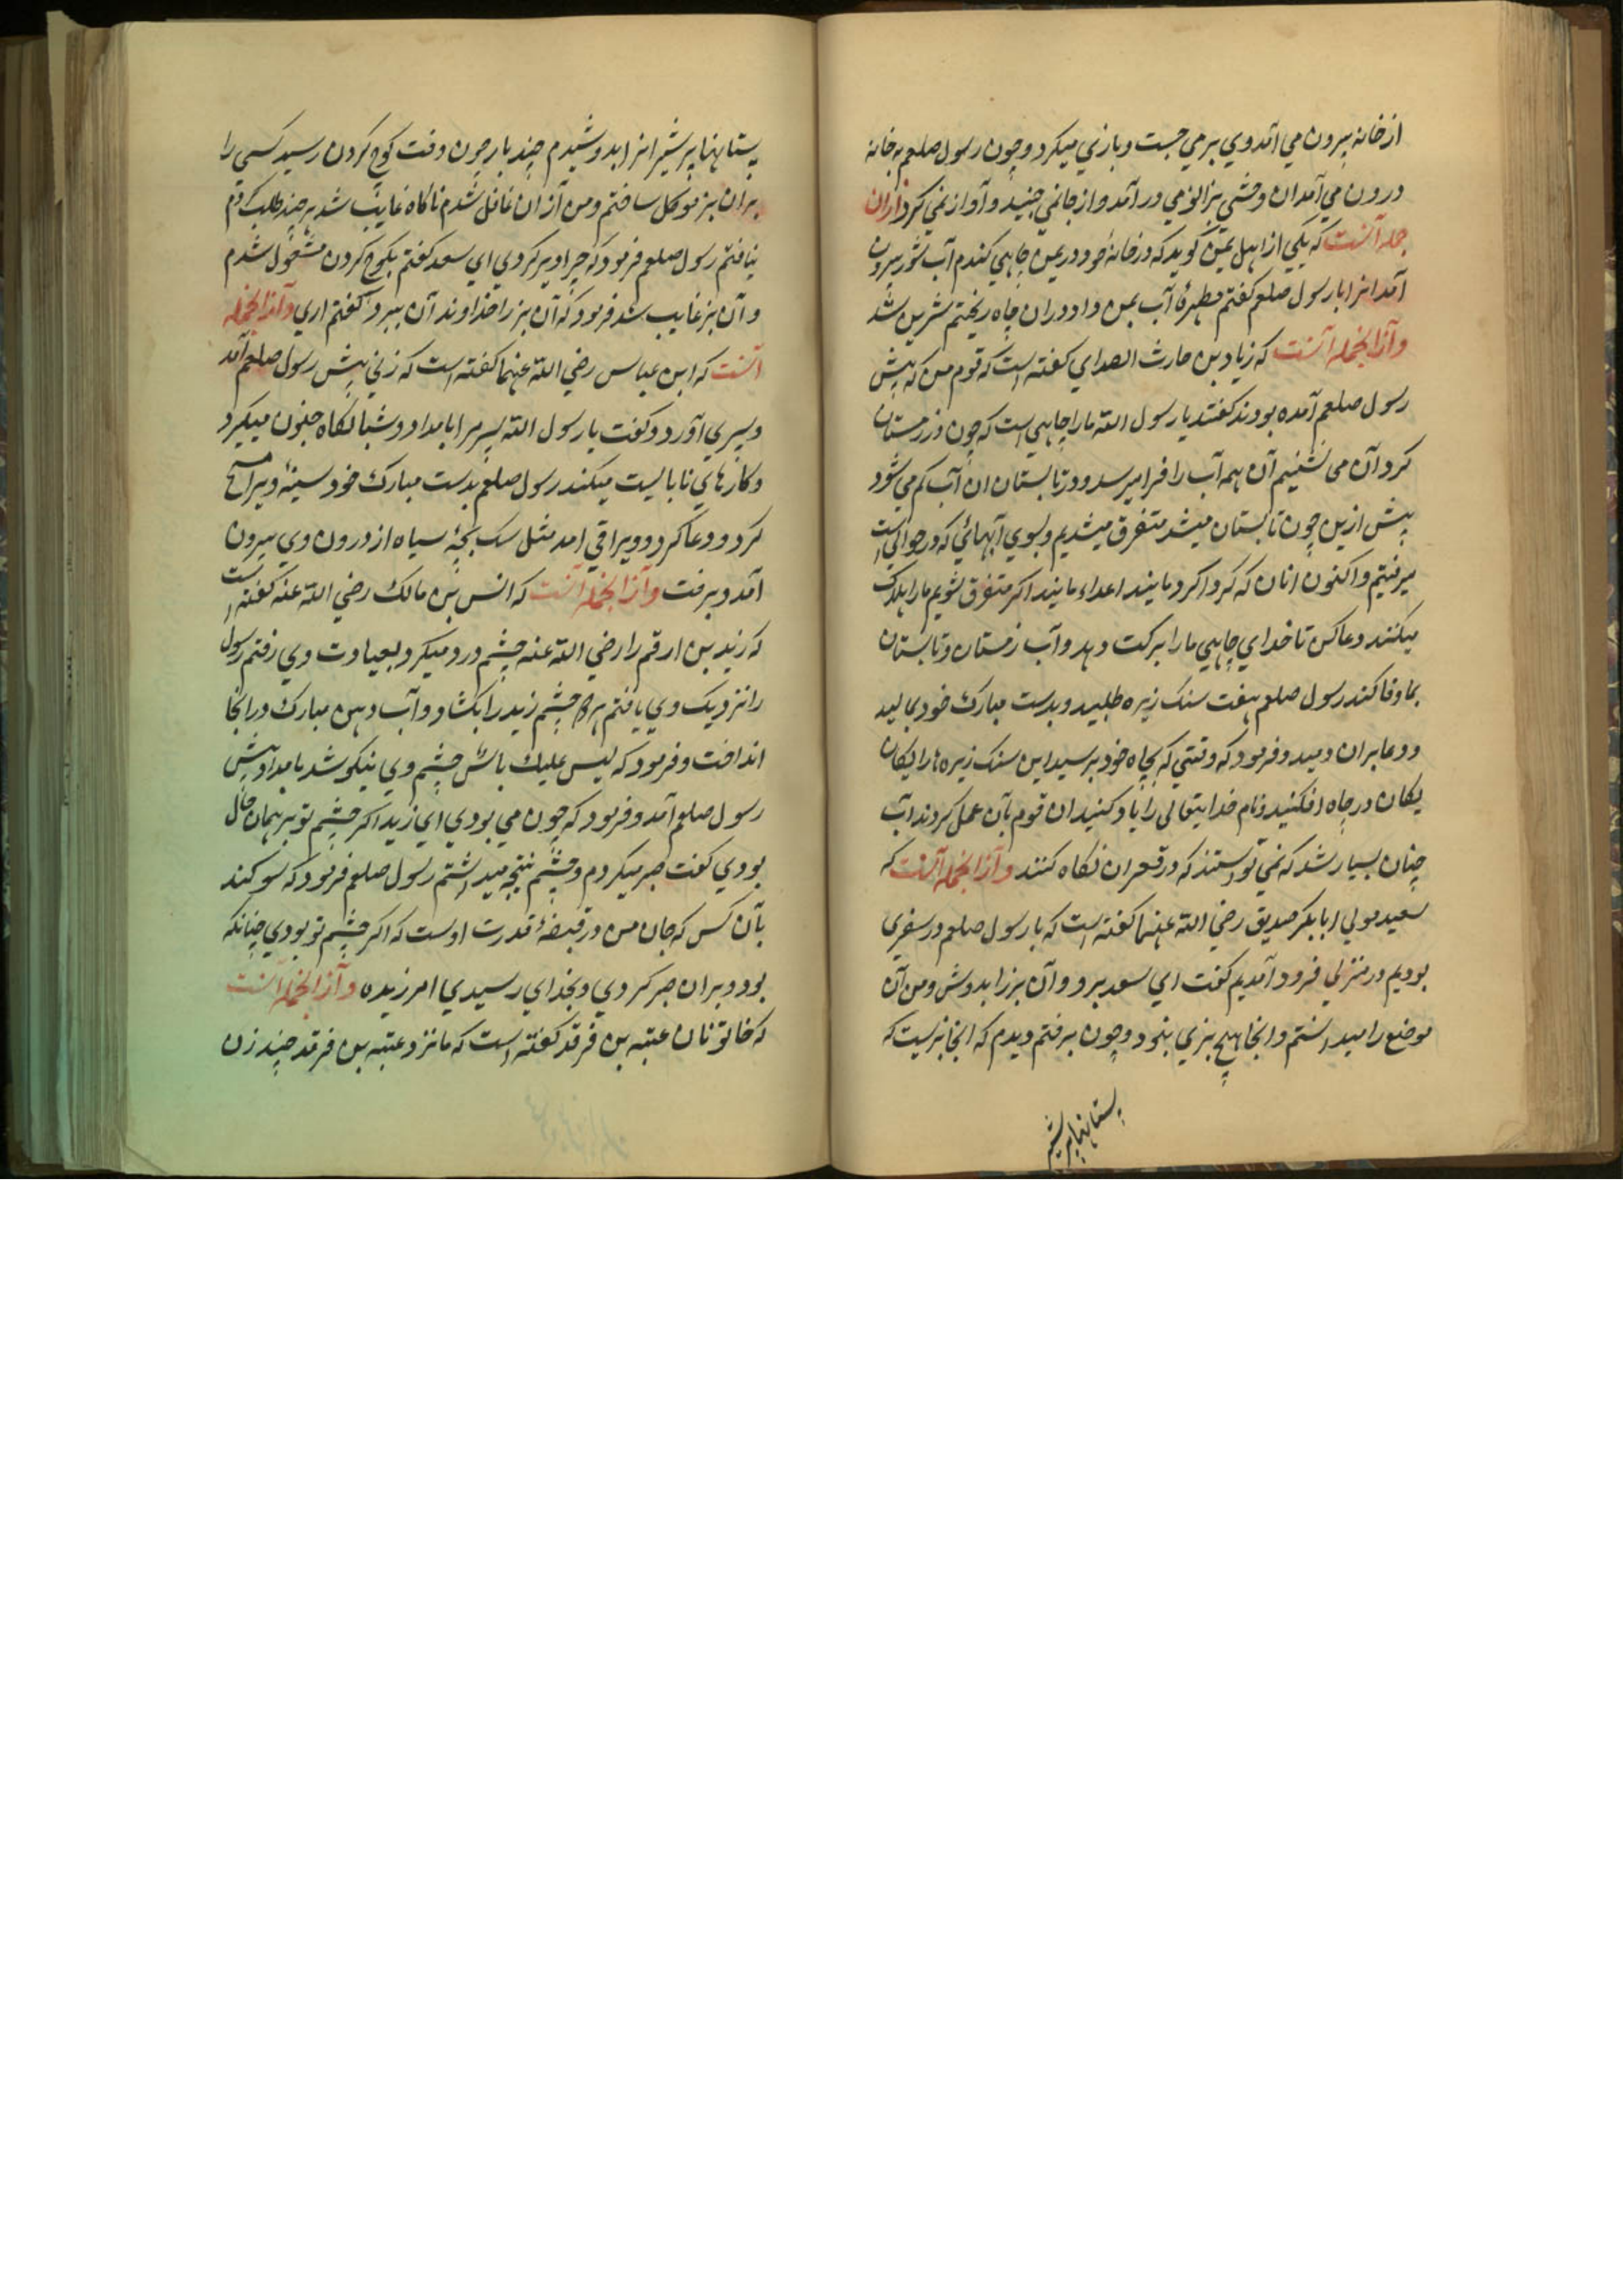 از خانه بیرون می آمد وی بر می جست و بازی میکرد و چون رسول صلعم به خانه
درون می آمد ان وحشی بزانو می در آمد و از جا نمی جنبید و آواز نمی کرد از ان
جمله آنست که یکی از اهل یمن کوید که در خانه خود در یمن چاهی کندم آب شور بیرون
آمد انرا با رسول صلعم کفتم مطهرهٔ آب بمن داد در ان چاه ریختم شیرین شد
و از انجمله آنست که زیاد بن حارث الصدای کفته است که قوم من که پیش
رسول صلعم آمده بودند کفتند یا رسول الله ما را چاهی است که چون در زمستان
کرد آن می نشینیم آن همه آب را فرا میرسد و در تابستان ان آب کم می شود
پیش ازین چون تابستان میشد متفرق میشدیم و بسوی آبهائی که در حوالی است
میرفتیم و اکنون انان که کرد اکرد مایند اعداء مایند اکر متفرق شویم ما را هلاک
میکنند دعا کن تا خدای چاهی ما را برکت دهد و آب زمستان و تابستان
بما وفا کند رسول صلعم هفت سنک ریزه طلبید و بدست مبارک خود بمالید
و دعا بران دمید و فرمود که وقتی که بچاه خود برسید این سنک ریزه ها را یکان
یکان در چاه افکنید و نام خدایتعالی را یاد کنید ان قوم بآن عمل کردند آب
چنان بسیار شد که نمی توانستند که در قعر ان نکاه کنند و از انجمله آنست که
سعید مولی ابابکر صدیق رضی الله عنهما کفته است که با رسول صلعم در سفری
بودیم در منزلی فرود آمدیم کفت ای سعد برو و آن بز را بدوش و من آن
موضع را میدانستم و انجا هیچ بزی نبود و چون برفتم دیدم که انجا بزیست که
پستانها پر شیر
پستانها پر شیر انرا بدوشیدم چند بار چون وقت کوچ کردن رسید کسی را
بران بز موکل ساختم و من از ان غافل شدم ناکاه غایب شد هر چند طلب کردم
نیافتم رسول صلعم فرمود که چرا دیر کردی ای سعد کفتم بکوچ کردن مشغول شدم
و آن بز غایب شد فرمود که آن بز را خداوند آن ببرد کفتم اری و از انجمله
آنست که ابن عباس رضی الله عنهما کفته است که زنی پیش رسول صلعم آمد
و پسری آورد و کفت یا رسول الله پسر مرا بامداد و شبانکاه جنون میکیرد
و کارهای نابایست میکند رسول صلعم بدست مبارک خود سینهٔ ویرا مسح
کرد و دعا کرد و ویرا قی امد مثل سک بچهٔ سیاه از درون وی بیرون
آمد و برفت و از انجمله آنست که انس بن مالک رضی الله عنه کفته است
که زید بن ارقم را رضی الله عنه چشم درد میکرد بعیادت وی رفتم رسول
را نزدیک وی یافتم هر دو چشم زید را بکشاد و آب دهن مبارک در انجا
انداخت و فرمود که لیس علیک بأس چشم وی نیکو شد بامداد پیش
رسول صلعم آمد و فرمود که چون می بودی ای زید اکر چشم تو بر همان حال
بودی کفت صبر میکردم و چشم نتیجه میداشتم رسول صلعم فرمود که سوکند
بآن کس که جان من در قبضهٔ قدرت اوست که اکر چشم تو بودی چنانکه
بود و بران صبر کردی و بخدای رسیدی امرزیده و از انجمله آنست
که خاتونان عتبه بن فرقد کفته است که ما نزد عتبه بن فرقد چند زن